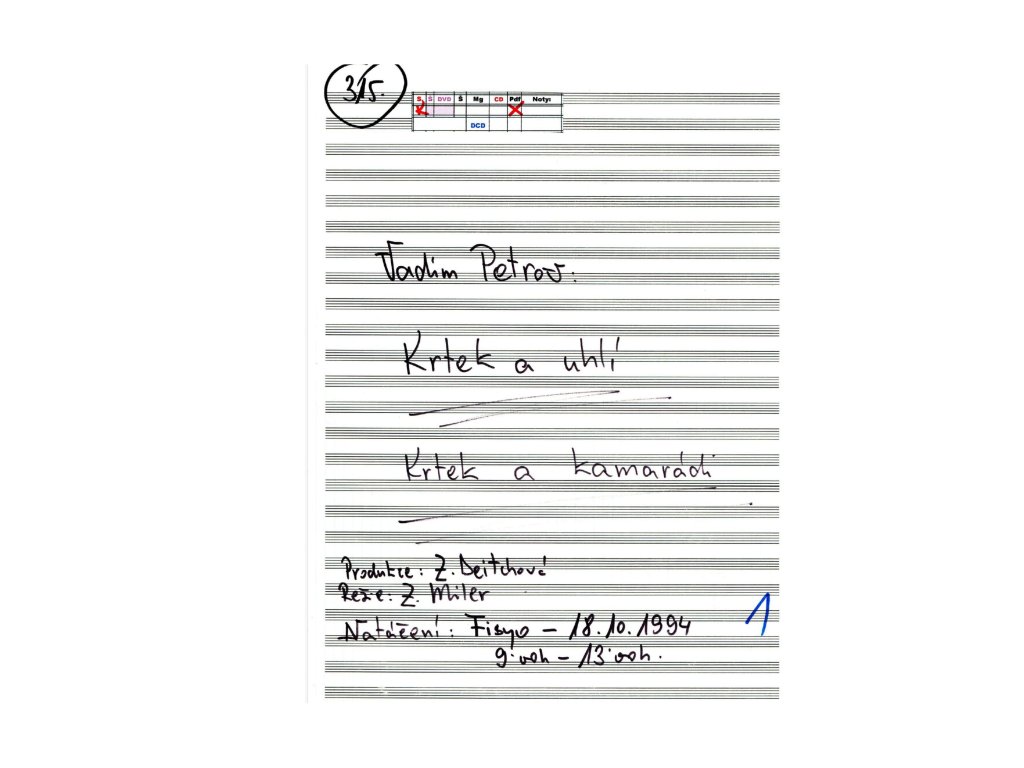 315.
S Š DVD Š Mg CD Pdf Noty:
DCD
Vadim Petrov:
Krtek a uhlí
Krtek a kamarádi
Produkce: Z. Deitchová
Režie: Z. Miler
Natáčení: Fisyo - 18.10.1994
9:00h - 13:00h.
1